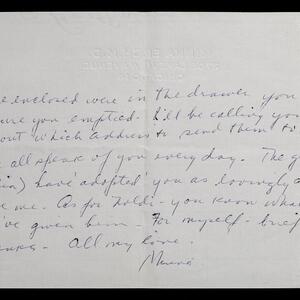 e enclosed were in the drawer you
ure you emptied. I'll be calling you
out which address to send them to
all speak of you every day. The g
) have 'adopted' you as lovingly a
e me. As for - you know what
've given him - For myself - brief
All my love.